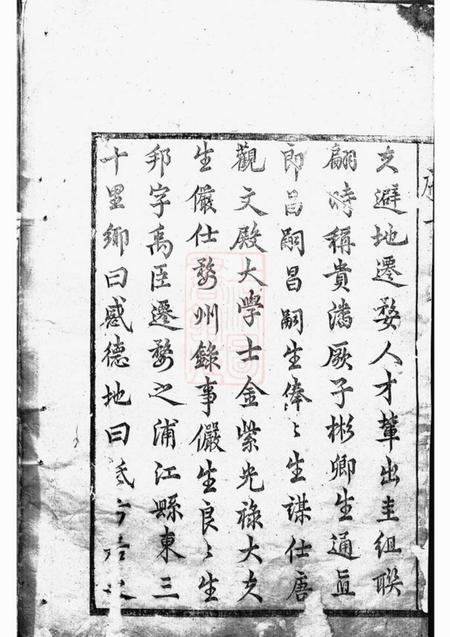 序一
文避地遷婺人才輩出圭組聯
翩時稱貴潘厥子彬卿生通直
郎昌嗣昌嗣生俸〻生謀仕唐
觀文殿大學士金紫光祿大夫
生儼仕婺州錄事儼生良〻生
邦字禹臣遷婺之浦江縣東三
十里鄉曰感德地曰